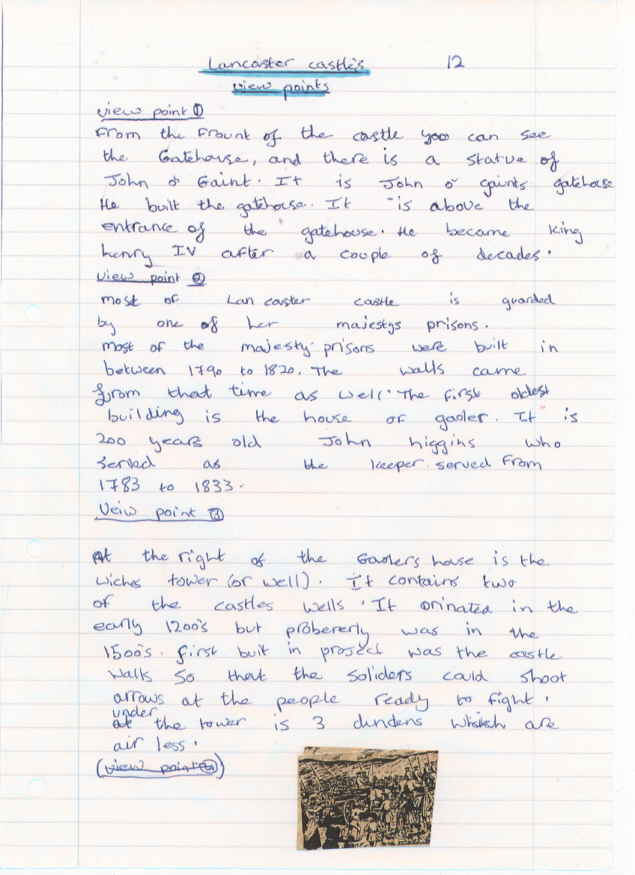 Lancaster castle's 12
view points
view point ①
From the Frount of the castle you can see
the Gatehouse, and there is a statue of
John o' Gaint. It is John o' gaints gatehouse
He built the gatehouse. It is above the
entrance of the gatehouse. He became king
henry IV after a couple of decades.
view point ②
most of Lancaster castle is guarded
by one of her majestys prisons.
most of the majesty prisons were built in
between 1790 to 1820. The walls came
from that time as well. The first oldest
building is the house of gaoler. It is
200 years old John higgins who
served as the keeper served From
1783 to 1833.
Veiw point ③
At the right of the Gaolers house is the
wiches tower (or well). It contains two
of the castles wells. It orinated in the
early 1200's but probererly was in the
1500's. first buit in project was the castle
walls so that the soliders could shoot
arrows at the people ready to fight.
under
at the tower is 3 dundens which are
air less.
(view point ④)